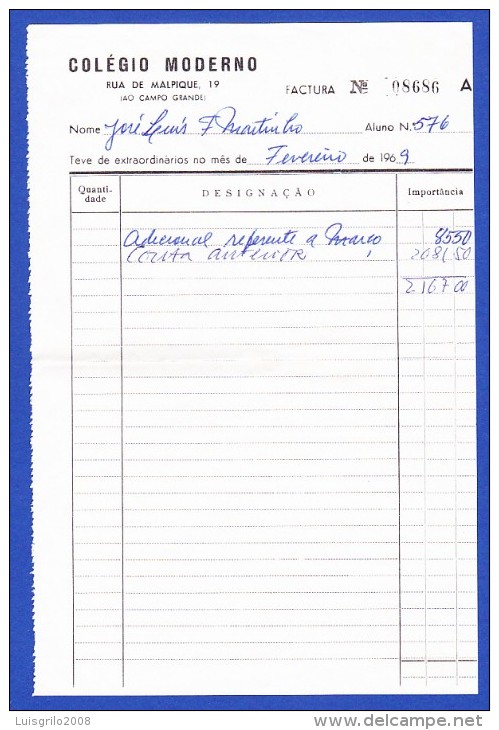 COLÉGIO MODERNO
RUA DE MALPIQUE, 19
(AO CAMPO GRANDE)
FACTURA Nº 08686 A
Nome José Luís F Martinho Aluno N. 576
Teve de extraordinários no mês de Fevereiro de 1969
Quanti-dade DESIGNAÇÃO Importância
Adicional referente a Março 8550
Conta anterior 2081 50
2167 00
Luisgrilo2008
delcampe.net